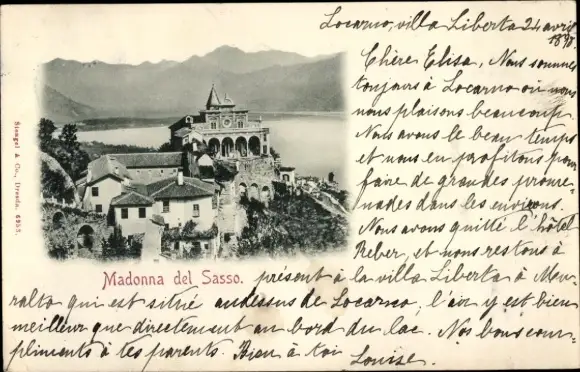 Locarno, villa Liberta 24 avril
1898
Chère Elisa, Nous sommes
toujours à Locarno où nous
nous plaisons beaucoup.
Nous avons le beau temps
et nous en profitons pour
faire de grandes prome-
nades dans les environs.
Nous avons quitté l'hôtel
Reber, et nous restons à
présent à la villa Liberta à Mu-
ralto qui est situé audessus de Locarno, l'air y est bien
meilleur que directement au bord du lac. Nos bons com-
pliments à tes parents. Bien à toi
Louise.
Madonna del Sasso.
Stengel & Co., Dresda. 6953.